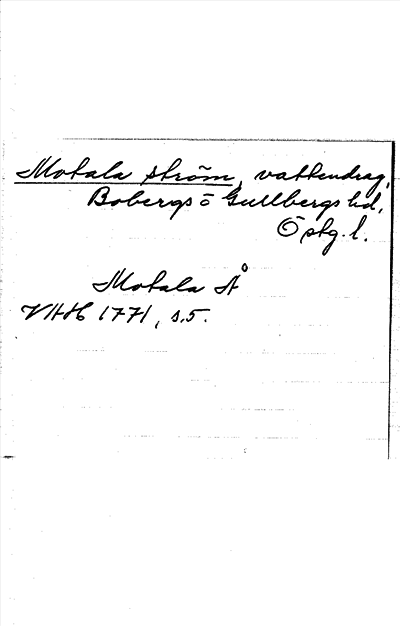 Motala ström, vattendrag,
Bobergs o Gullbergs hd,
Östg. l.
Motala Å
VAH 1771, s. 5.